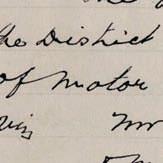 the District
of Motor
viz